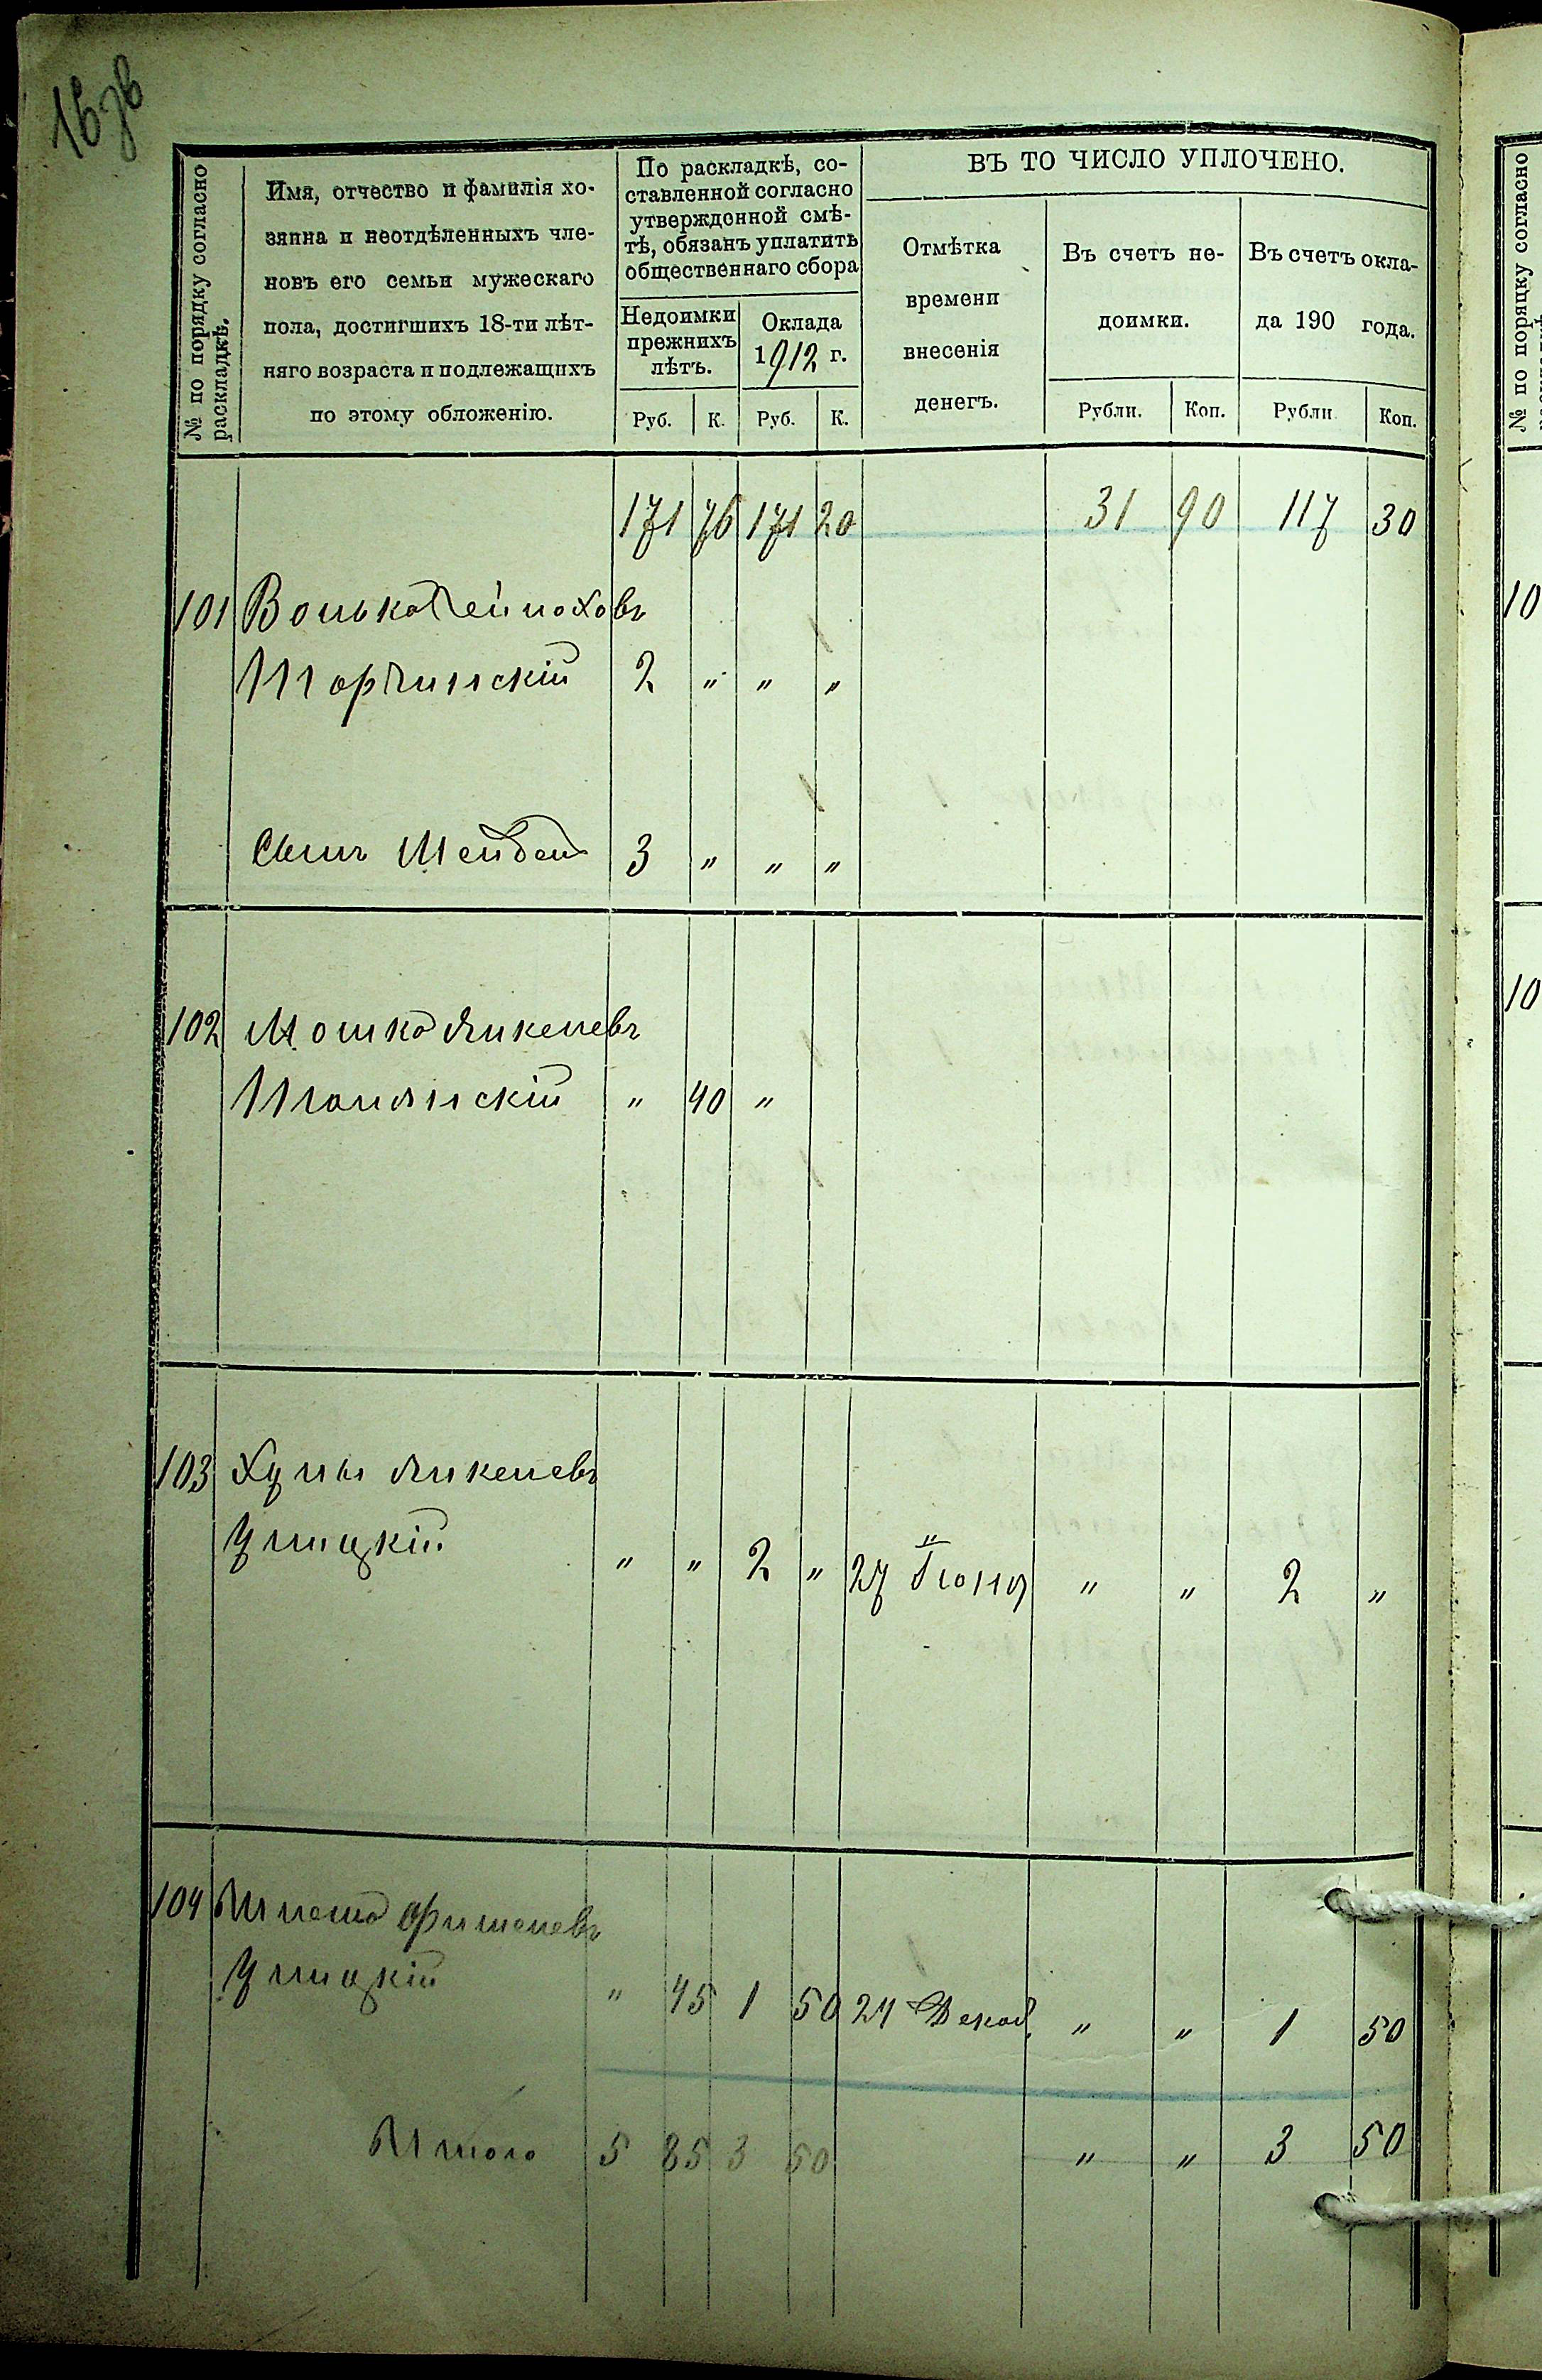 16 зв
№ по порядку согласно раскладкѣ.
Имя, отчество и фамилія хо-
зяина и неотдѣленныхъ чле-
новъ его семьи мужескаго
пола, достигшихъ 18-ти лѣт-
няго возраста и подлежащихъ
по этому обложенію.
По раскладкѣ, со-
ставленной согласно
утвержденной смѣ-
тѣ, обязанъ уплатить
общественнаго сбора
Недоимки
прежнихъ
лѣтъ.
Оклада
1912 г.
Руб. К. Руб. К.
ВЪ ТО ЧИСЛО УПЛОЧЕНО.
Отмѣтка
времени
внесенія
денегъ.
Въ счетъ не-
доимки.
Въ счетъ окла-
да 190 года.
Рубли. Коп. Рубли Коп.
171 76 171 20 31 90 117 30
101 Волько Пейсаховъ
Торчинскій 2 " " "
Сынъ 3 " " "
102 Мошко
" 40 "
103
Улицкій " " 2 " 27 Іюня " " 2 "
104
Улицкій " 45 1 50 24 Декаб. " " 1 50
Итого 5 85 3 50 " " 3 50
№ по порядку согласно
10
10